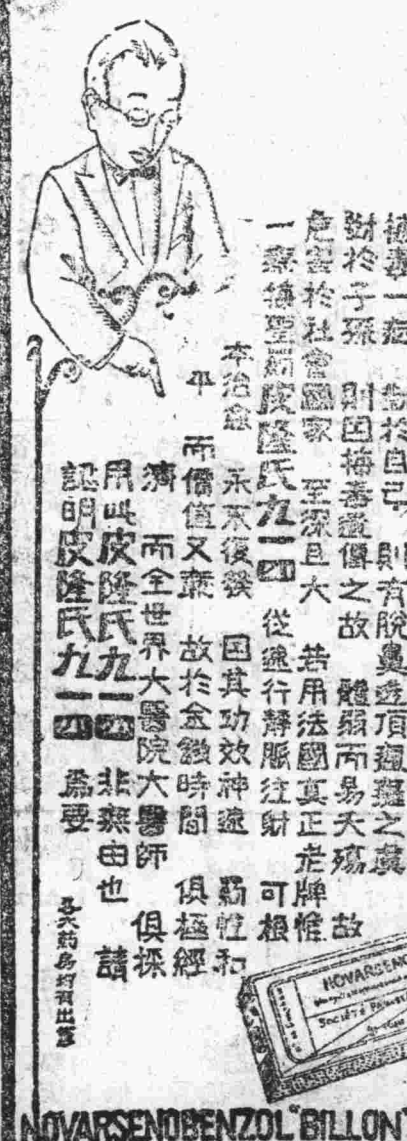 梅毒一症 對於自己 則有脫鼻透頂瘋癱之虞
對於子孫 則因梅毒遺傳之故 體弱而易夭殤 故
危害於社會國家 至深且大 若用法國真正老牌惟
一療梅聖藥皮隆氏九一四 從速行靜脈注射 可根
本治愈 永不復發 因其功效神速 藥性和
平 而價值又廉 故於金錢時間 俱極經
濟 而全世界大醫院大醫師 俱採
用此皮隆氏九一四 非無由也 請
認明皮隆氏九一四 為要
各大藥房均有出售
NOVARSENO
SOCIÉTÉ
NOVARSENOBENZOL "BILLON"